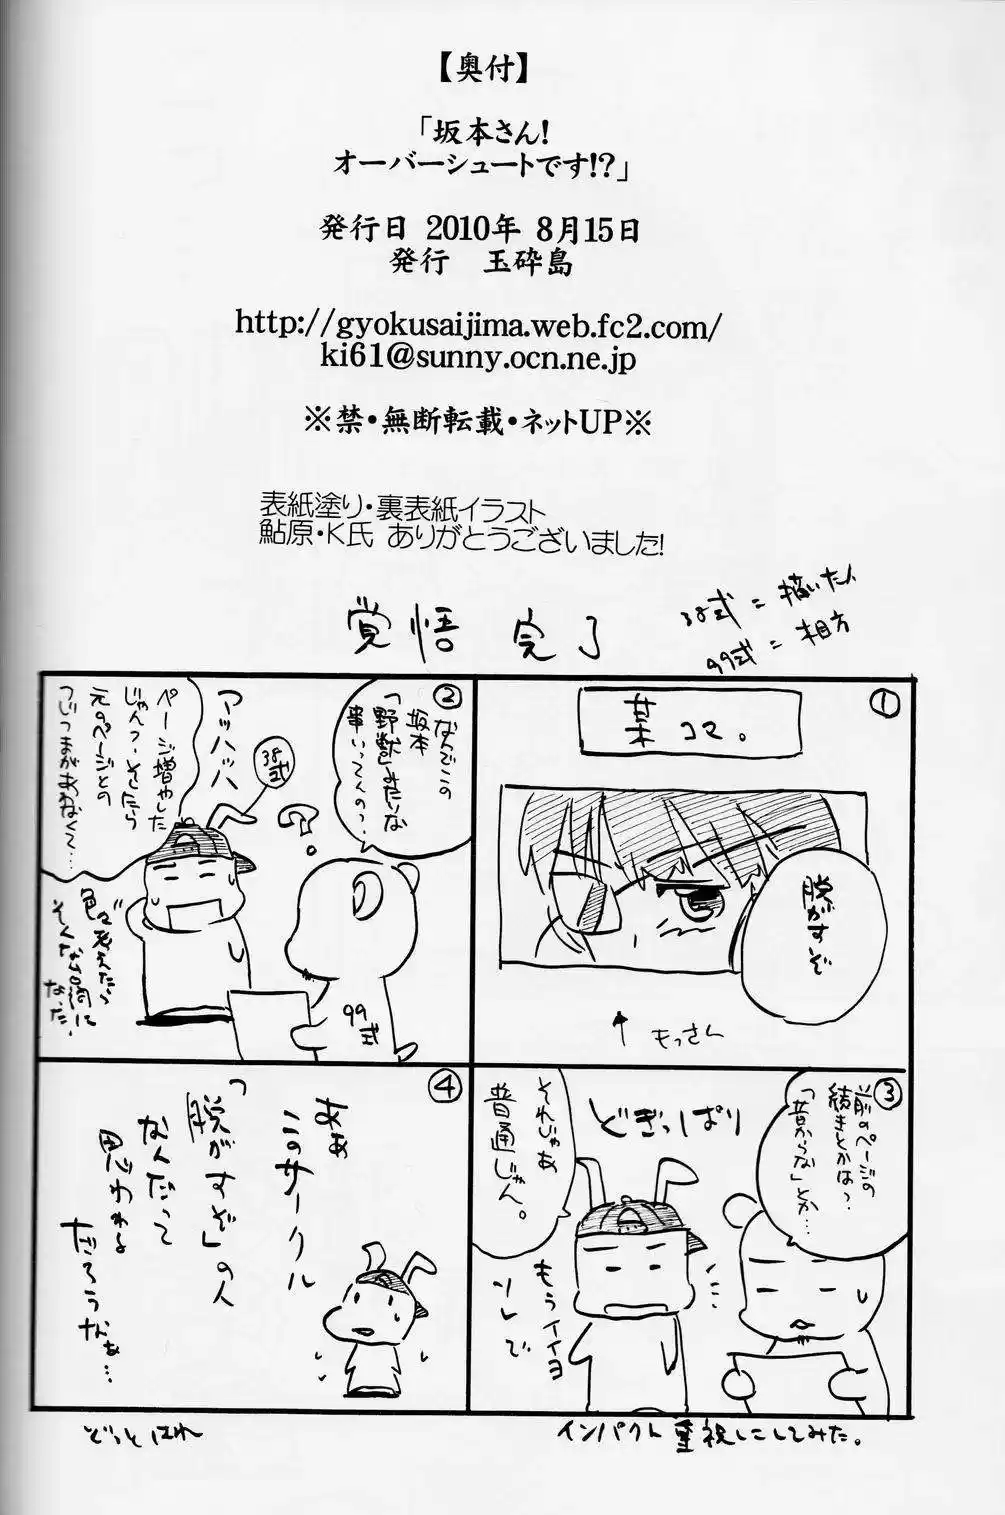 【奥付】
「坂本さん!
オーバーシュートです!?」
発行日 2010年 8月15日
発行 玉砕島
http://gyokusaijima.web.fc2.com/
ki61@sunny.ocn.ne.jp
※禁・無断転載・ネットUP※
表紙塗り・裏表紙イラスト
鮎原・K氏 ありがとうございました!
覚悟 完了
38式=描いた人
99式=相方
①
某コマ。
脱がすぞ
もっさん
②
なんでこの
坂本
「野獣」みたいな
事いってんの?
38式
99式
アッハッハ
ページ増やした
じゃんー そしたら
元のページとの
つじつまがあわなくて…
色々考えたら
そんな台詞に
なった。
③
前のページの
続きとかは?
「昔からな」とか…
どぎっぱり
それじゃあ
普通じゃん。
もうイイヨ
ソレで
④
ああ
このサークル
「脱がすぞ」の人
なんだって
思われる
だろうなぁ…
インパクト重視にしてみた。
どっとはれ